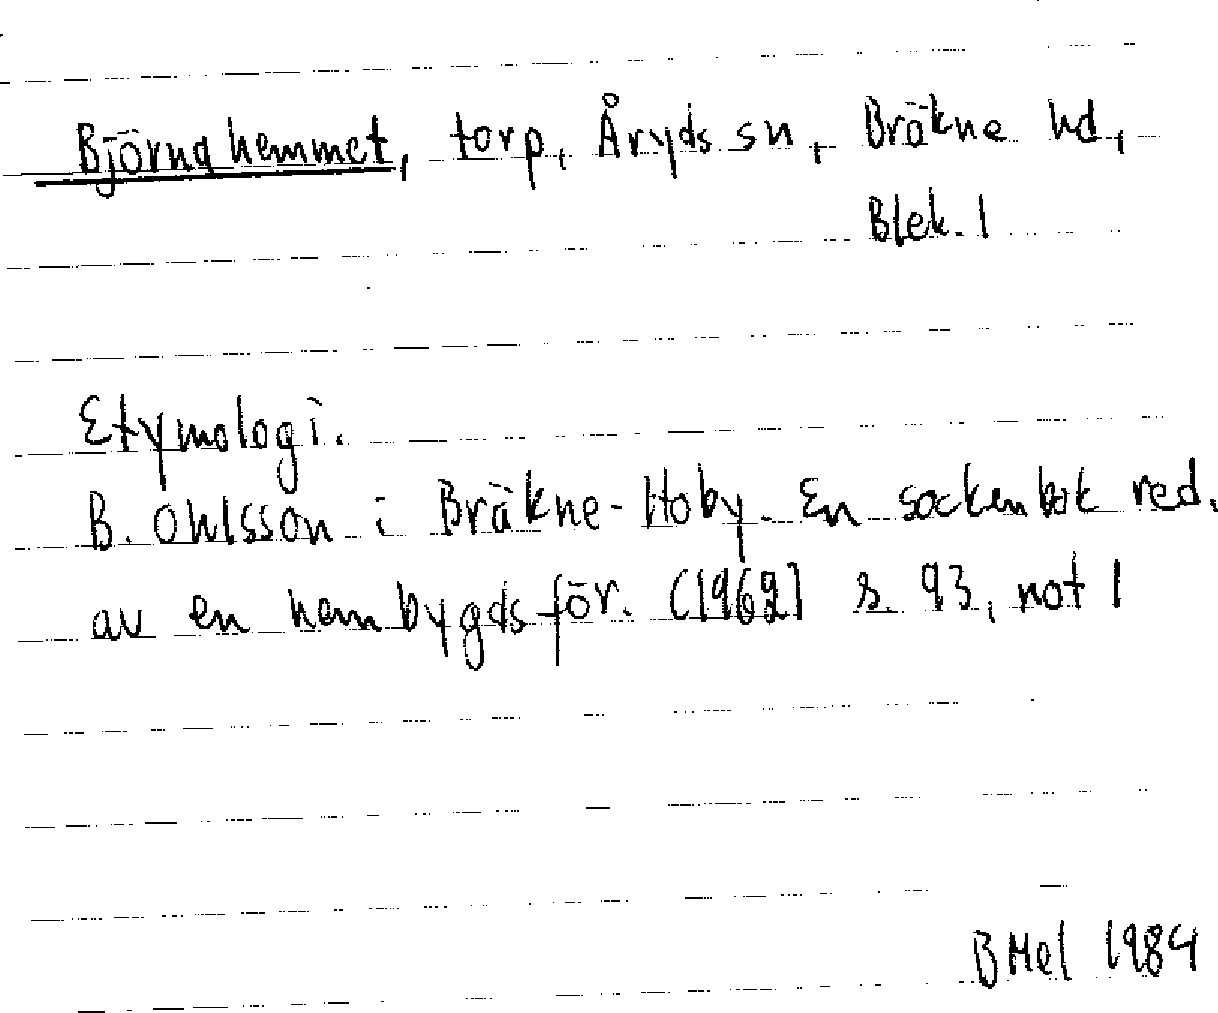 Björnahemmet, torp, Åryds sn, Bräkne hd,
Blek. l
Etymologi.
B. Ohlsson i Bräkne-Hoby. En sockenbok red.
av en hembygdsför. (1962) s 93, not 1
BMel 1984